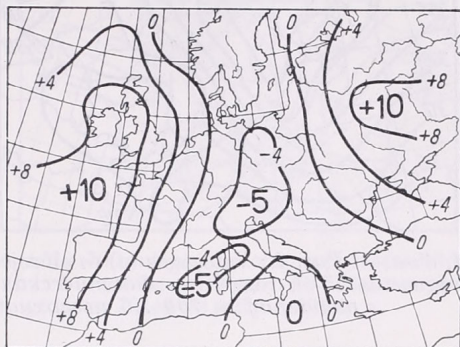 0
0
+4
+4
+8
+10
+8
+8
+10
-4
-5
+4
0
-4
-5
0
+8
+4
0
0
0